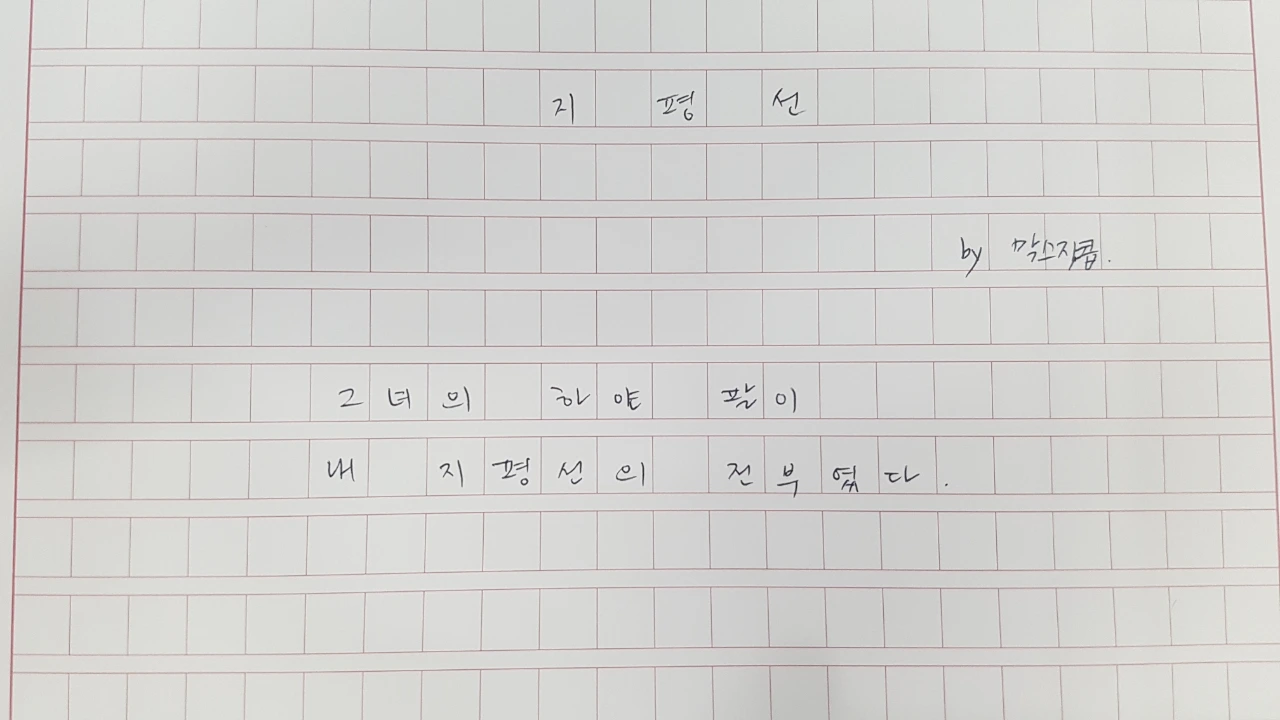 지 평 선
by 막스자콥.
그녀의 하얀 팔이
내 지평선의 전부였다.